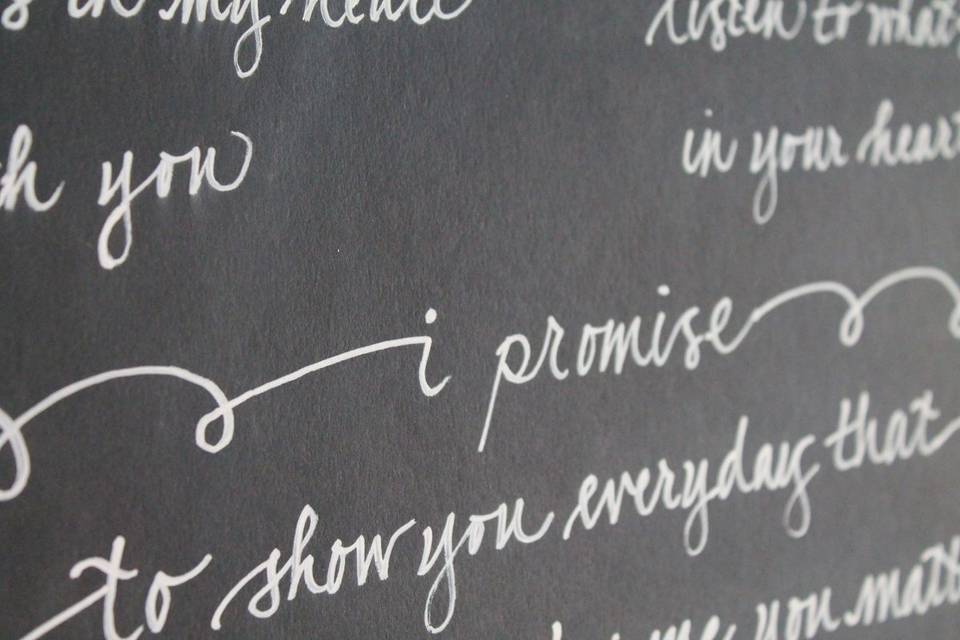 in my heart
listen to what
you
in your heart
i promise
to show you everyday that
me you matt